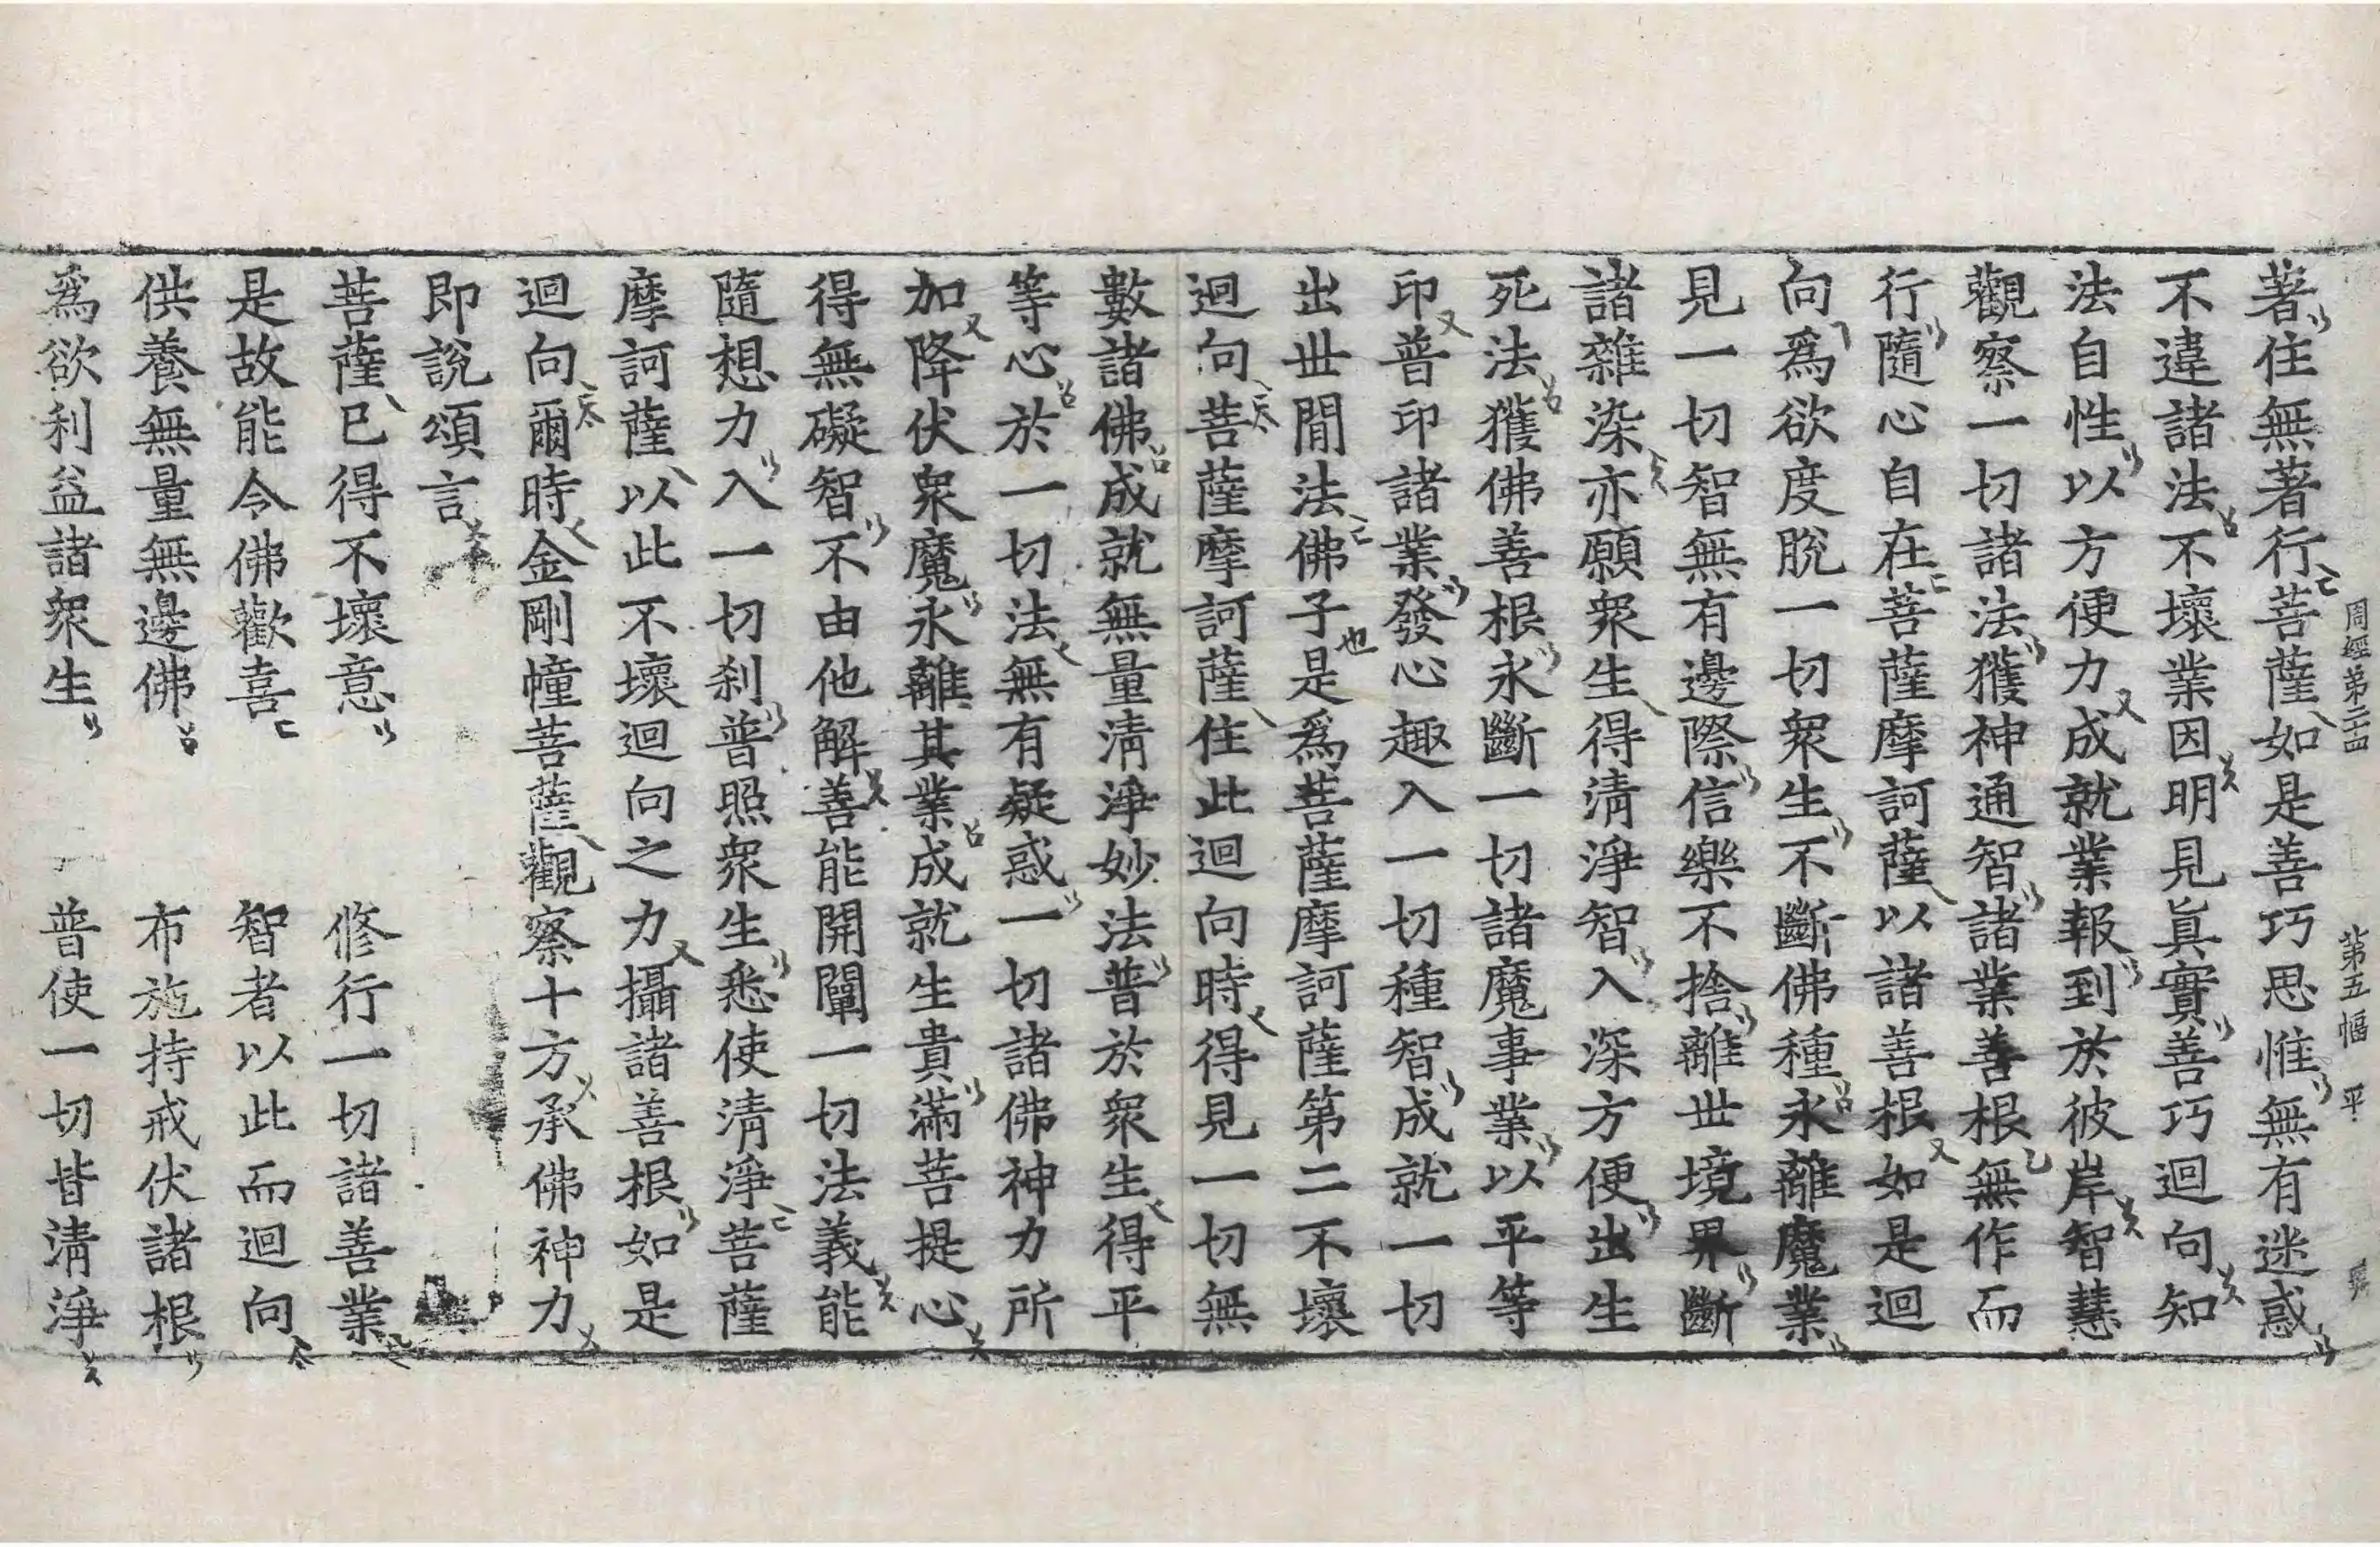 周經第二十四 第五幅 平
著住無著行菩薩如是善巧思惟無有迷惑
不違諸法不壞業因明見眞實善巧迴向知
法自性以方便力成就業報到於彼岸智慧
觀察一切諸法獲神通智諸業善根無作而
行隨心自在菩薩摩訶薩以諸善根如是迴
向爲欲度脫一切衆生不斷佛種永離魔業
見一切智無有邊際信樂不捨離世境界斷
諸雜染亦願衆生得清淨智入深方便出生
死法獲佛善根永斷一切諸魔事業以平等
印普印諸業發心趣入一切種智成就一切
出世閒法佛子也是爲菩薩摩訶薩第二不壞
迴向菩薩摩訶薩住此迴向時得見一切無
數諸佛成就無量淸淨妙法普於衆生得平
等心於一切法無有疑惑一切諸佛神力所
加降伏衆魔永離其業成就生貴滿菩提心
得無礙智不由他解善能開闡一切法義能
隨想力入一切刹普照衆生悉使淸淨菩薩
摩訶薩以此不壞迴向之力攝諸善根如是
迴向爾時金剛幢菩薩觀察十方承佛神力
即說頌言
菩薩已得不壞意 修行一切諸善業
是故能令佛歡喜 智者以此而迴向
供養無量無邊佛 布施持戒伏諸根
爲欲利益諸衆生 普使一切皆淸淨